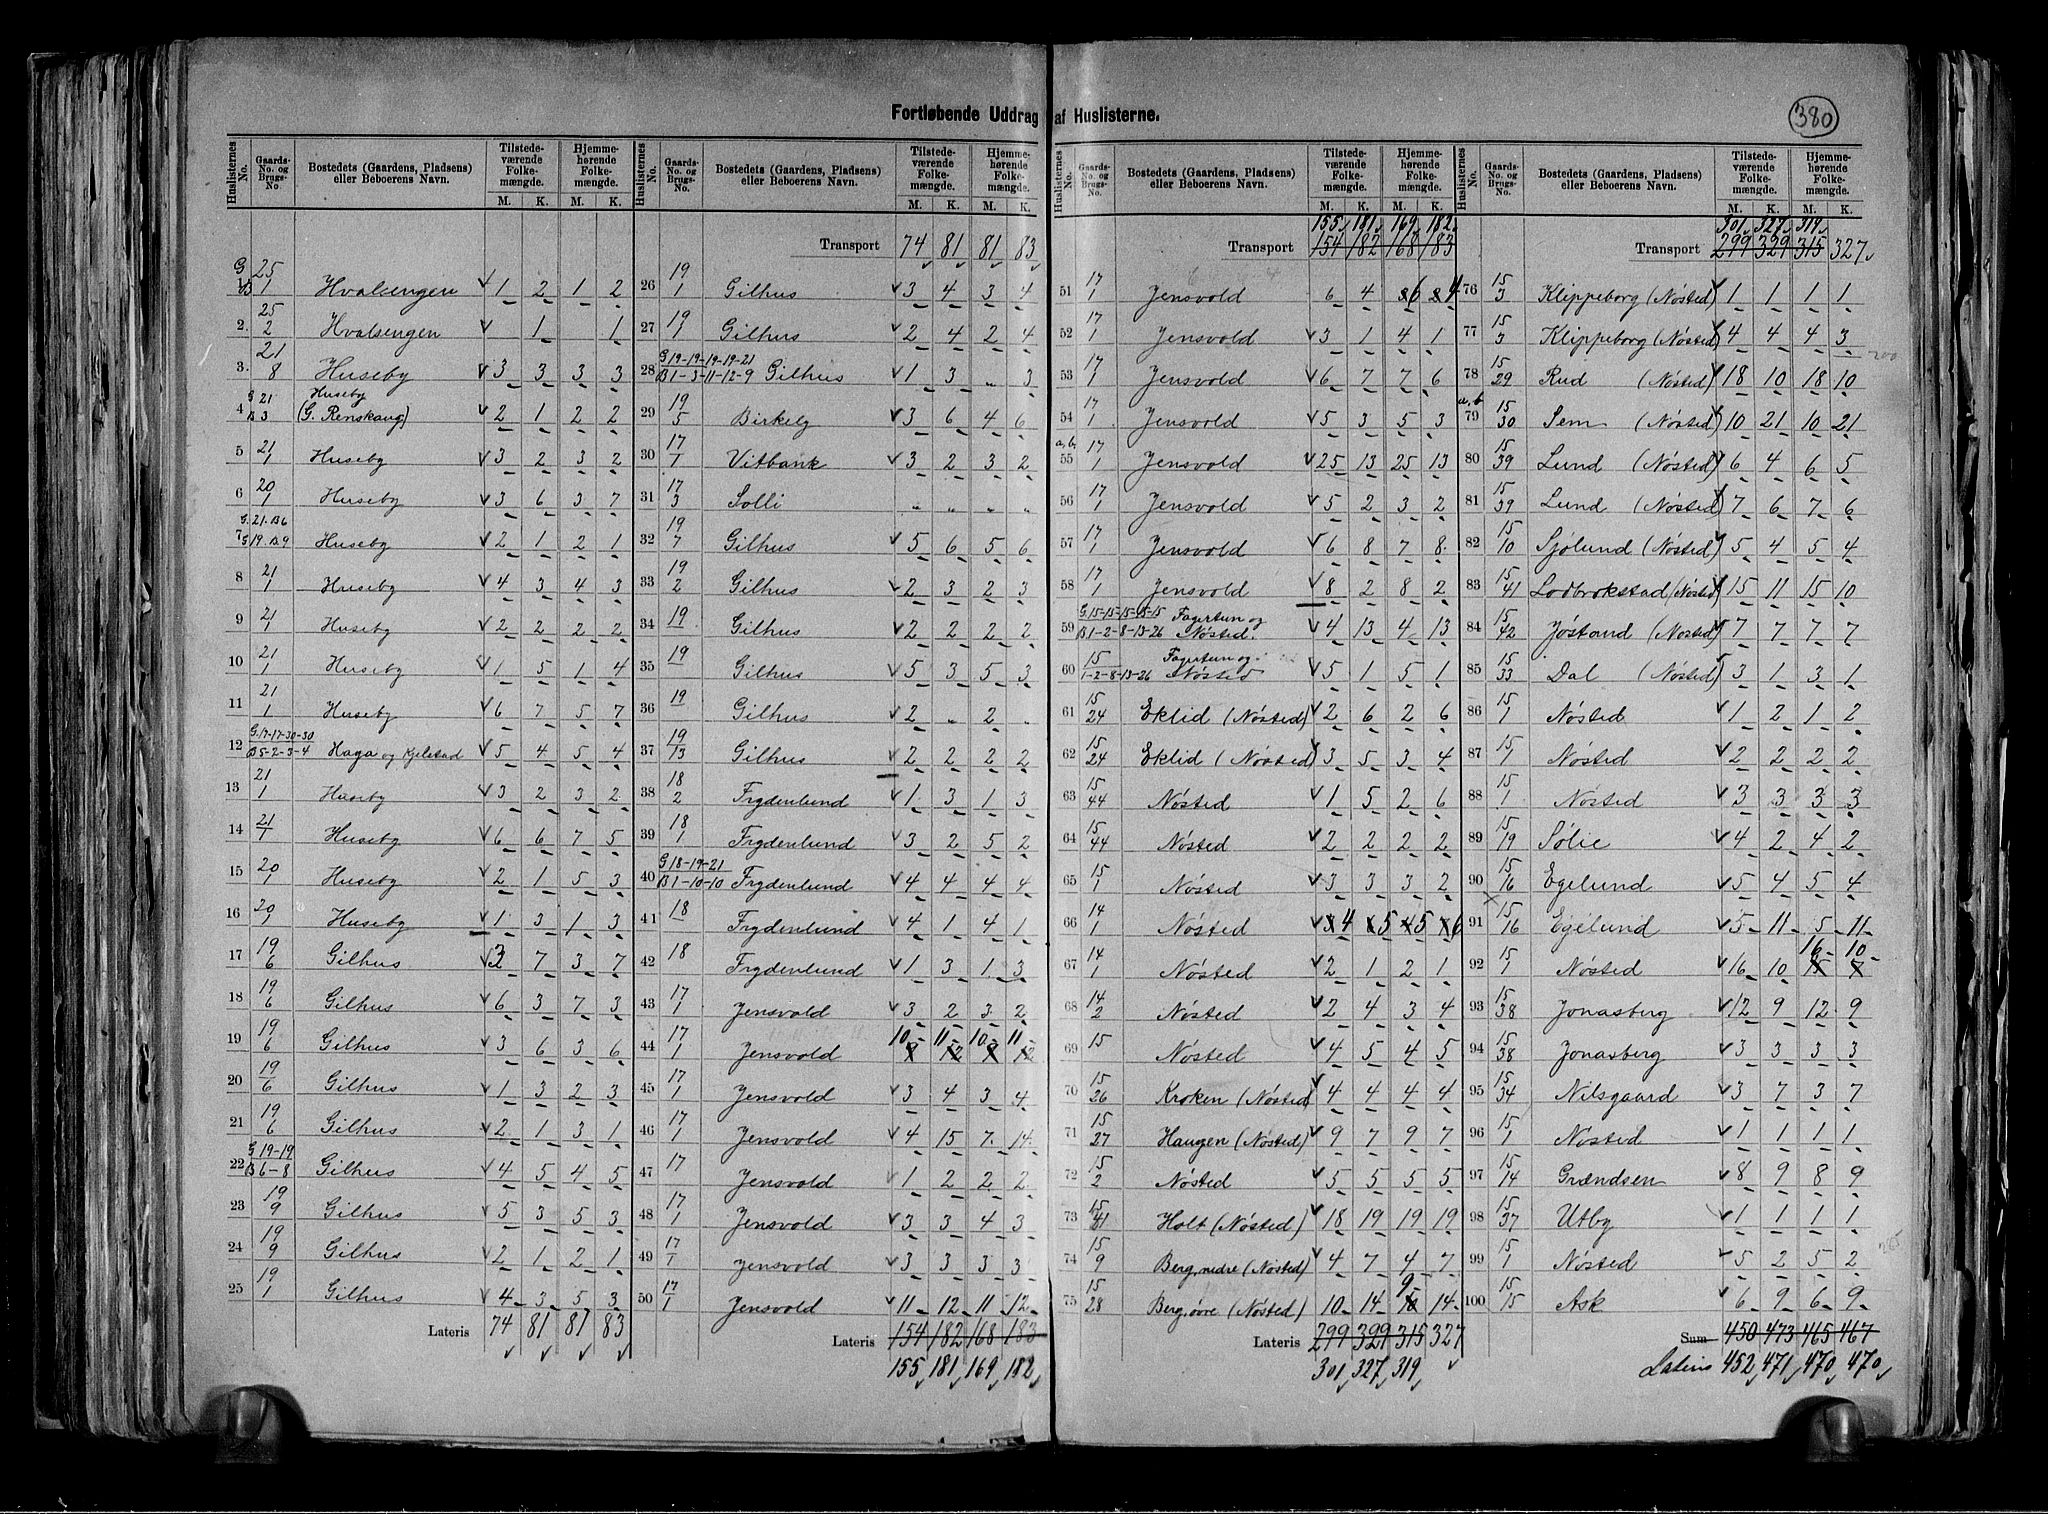 Fortløbende Uddrag af Huslisterne.
380
Huslisternes No. | Gaards-No. og Brugs-No | Bostedets (Gaardens, Pladsens) eller Beboerens Navn. | Tilstedeværende Folkemængde. M. K. | Hjemmehørende Folkemængde. M. K.
1 G 25 B 1 Hvalsengen 1 2 1 2
2. 25/2 Hvalsengen 1 1
3. 21/8 Huseby 3 3 3 3
4 G 21 B 3 Huseby (G. Renskaug) 2 1 2 2
5 21/1 Huseby 3 2 3 2
6 20/1 Huseby 3 6 3 7
7 G. 21. B6 G 19. B.9 Huseby 2 1 2 1
8 21/1 Huseby 4 3 4 3
9 21/1 Huseby 2 2 2 2
10 21/1 Huseby 1 5 1 4
11 21/1 Huseby 6 7 5 7
12 G. 17-17-30-30 B 5-2-3-4 Haga og Kjelstad 5 4 5 4
13 21/1 Huseby 3 2 3 2
14 21/1 Huseby 6 6 7 5
15 20/1 Huseby 2 1 5 3
16 20/1 Huseby 1 3 1 3
17 19/6 Gilhus 7 3 7
18 19/6 Gilhus 6 3 7 3
19 19/6 Gilhus 3 6 3 6
20 19/6 Gilhus 1 3 2 3
21 19/6 Gilhus 2 1 3 1
22 G 19-19 B 6-8 Gilhus 4 5 4 5
23 19/9 Gilhus 5 3 5 3
24 19/9 Gilhus 2 1 2 1
25 19/1 Gilhus 4 3 5 3
Lateris 74 81 81 83
Huslisternes No. | Gaards-No. og Brugs-No. | Bostedets (Gaardens, Pladsens) eller Beboerens Navn. | Tilstedeværende Folkemængde. M. K. | Hjemmehørende Folkemængde. M. K.
Transport 74 81 81 83
26 19/1 Gilhus 3 4 3 4
27 19/1 Gilhus 2 4 2 4
28 G 19-19-19-19-21 B 1-3-11-12-9 Gilhus 1 3 „ 3
29 19/5 Birkely 3 6 4 6
30 17/1 Vitbank 3 2 3 2
31 17/3 Solli „ „ „ „
32 19/7 Gilhus 5 6 5 6
33 19/2 Gilhus 2 3 2 3
34 19 Gilhus 2 2 2 2
35 19 Gilhus 5 3 5 3
36 19 Gilhus 2 „ 2 „
37 19/13 Gilhus 2 2 2 2
38 18/2 Frydenlund 1 3 1 3
39 18/1 Frydenlund 3 2 5 2
40 G 18-19-21 B 1-10-10 Frydenlund 4 4 4 4
41 18 Frydenlund 4 1 4 1
42 18 Frydenlund 1 3 1 3
43 17/1 Jensvold 3 2 3 2
44 17/1 Jensvold 10 11 10 11
45 17/1 Jensvold 3 4 3 4
46 17/1 Jensvold 4 15 7 14
47 17 Jensvold 1 2 2 2
48 17/1 Jensvold 3 3 4 3
49 17/1 Jensvold 3 3 3 3
50 17/1 Jensvold 11 12 11 12
Lateris 154 182 168 183
155 181 169 182
Huslisternes No. | Gaards-No. og Brugs-No. | Bostedets (Gaardens, Pladsens) eller Beboerens Navn. | Tilstedeværende Folkemængde. M. K. | Hjemmehørende Folkemængde. M. K.
155 181 169 182
Transport 154 182 168 183
51 17/1 Jensvold 6 4 6 4
52 17/1 Jensvold 3 1 4 1
53 17/1 Jensvold 6 7 7 6
54 17/1 Jensvold 5 3 5 3
55 a, b. 17/1 Jensvold 25 13 25 13
56 17/1 Jensvold 5 2 3 2
57 17/1 Jensvold 6 8 7 8
58 17/1 Jensvold 8 2 8 2
59 G 15-15-15-15-15 B 1-2-8-13-26 Fagertun og Nøsted. 4 13 4 13
60 15/1-2-8-13-26 Fagertun og Nøsted 5 1 5 1
61 15/24 Eklid (Nøsted) 2 6 2 6
62 15/24 Eklid (Nøsted) 3 5 3 4
63 15/44 Nøsted 1 5 2 6
64 15/44 Nøsted 2 2 2 2
65 15/1 Nøsted 3 3 3 2
66 14/1 Nøsted 4 5 5 6
67 14/1 Nøsted 2 1 2 1
68 14/2 Nøsted 2 4 3 4
69 15 Nøsted 4 5 4 5
70 15/26 Kroken (Nøsted) 4 4 4 4
71 15/27 Haugen (Nøsted) 9 7 9 7
72 15/2 Nøsted 5 5 5 5
73 15/41 Holt (Nøsted) 18 19 19 19
74 15/9 Berg, nedre (Nøsted) 4 7 4 7
75 15/28 Berg, øvre (Nøsted) 10 14 9 14
Lateris 299 329 315 327
301 327 319
Huslisternes No. | Gaards-No. og Brugs-No. | Bostedets (Gaardens, Pladsens) eller Beboerens Navn. | Tilstedeværende Folkemængde. M. K. | Hjemmehørende Folkemængde. M. K.
301 327 319
Transport 299 329 315 327
76 15/3 Klippeborg (Nøsted) 1 1 1 1
77 15/3 Klippeborg (Nøsted) 4 4 4 3
200
78 15/29 Rud (Nøsted) 18 10 18 10
79 a, b 15/30 Sem (Nøsted) 10 21 10 21
80 15/39 Lund (Nøsted) 6 4 6 5
81 15/39 Lund (Nøsted) 7 6 7 6
82 15/10 Sjølund (Nøsted) 5 4 5 4
83 15/41 Lodbrokstad (Nøsted) 15 11 15 10
84 15/42 Jøstand (Nøsted) 7 7 7 7
85 15/33 Dal (Nøsted) 3 1 3 1
86 15/1 Nøsted 1 2 1 2
87 15/1 Nøsted 2 2 2 2
88 15/1 Nøsted 3 3 3 3
89 15/19 Sølie 4 2 4 2
90 15/16 Egelund 5 4 5 4
91 15/16 Egelund 5 11 5 11
92 15/1 Nøsted 16 10 16 10
93 15/38 Jonasberg 12 9 12 9
94 15/38 Jonasberg 3 3 3 3
95 15/34 Nilsgaard 3 7 3 7
96 15/1 Nøsted 1 1 1 1
97 15/14 Grændsen 8 9 8 9
98 15/37 Utby 1 1 1 1
99 15/1 Nøsted 5 2 5 2
100 15/15 Ask 6 9 6 9
Sum 450 473 465 467
Lateris 452 471 470 470